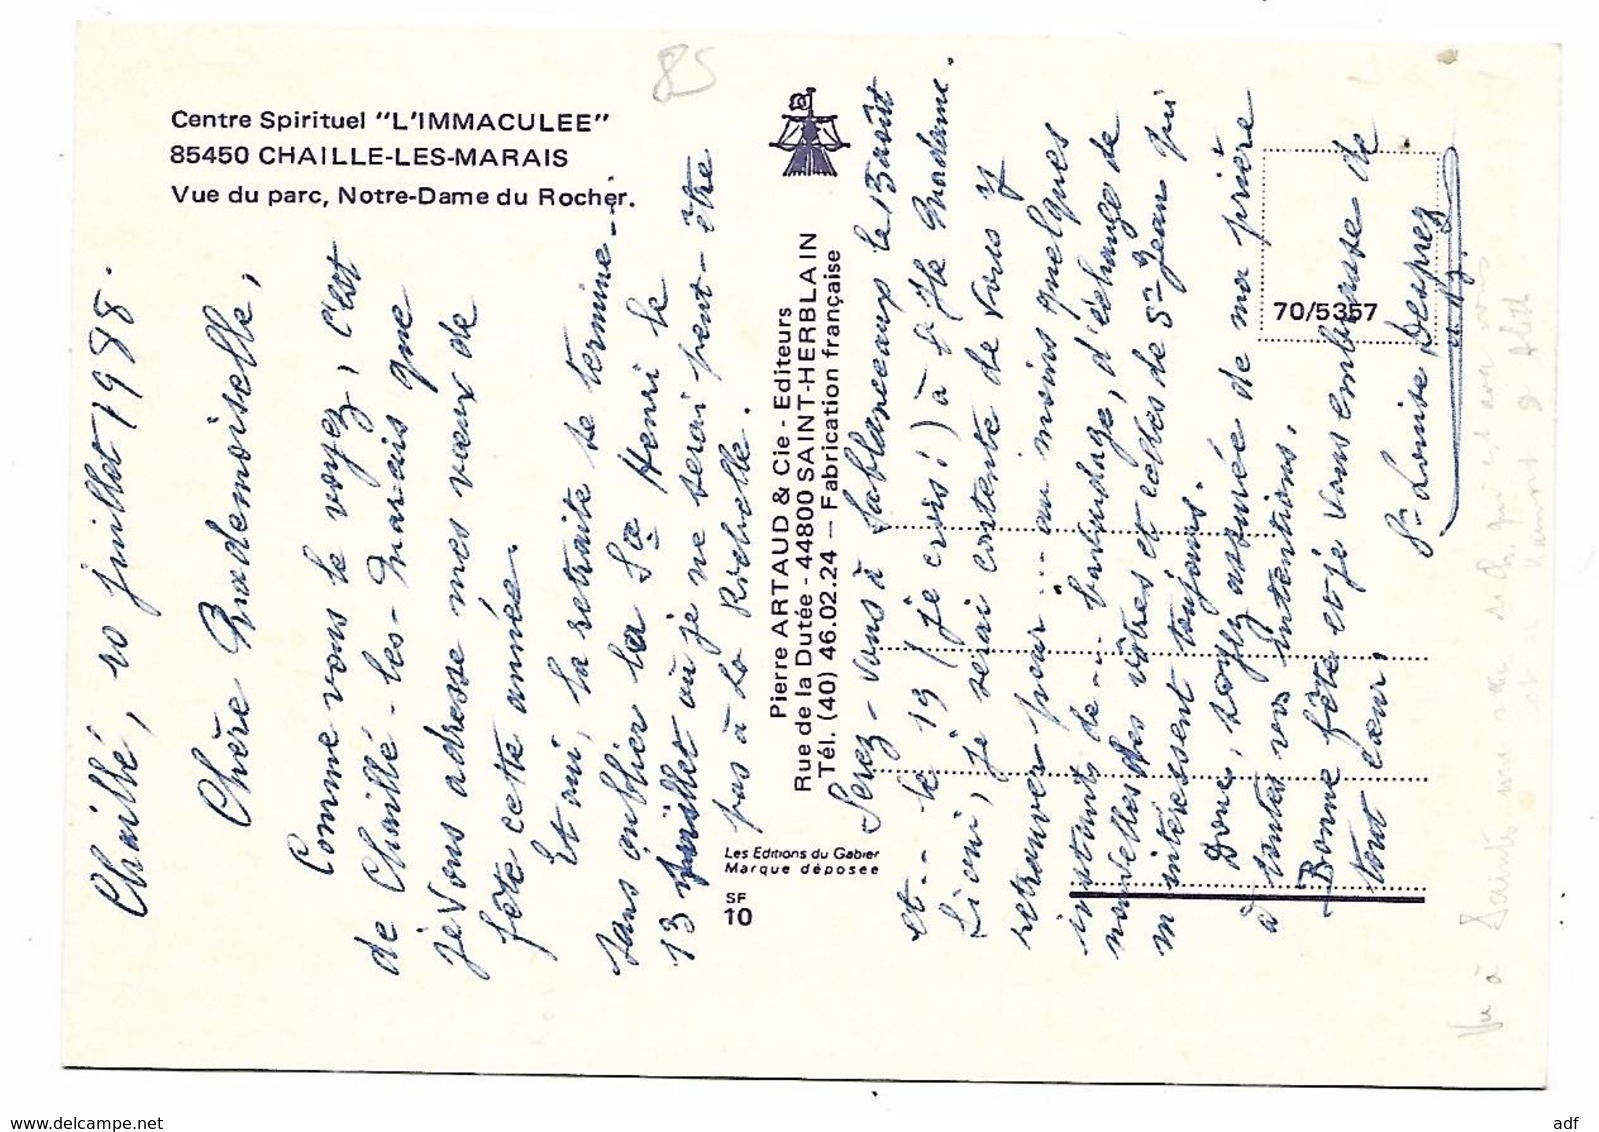 Centre Spirituel "L'IMMACULEE"
85450 CHAILLE-LES-MARAIS
Vue du parc, Notre-Dame du Rocher.
85
Pierre ARTAUD & Cie - Editeurs
Rue de la Dutée - 44800 SAINT-HERBLAIN
Tél. (40) 46.02.24 — Fabrication française
Les Editions du Gabier
Marque déposée
SF
10
70/5357
Chaillé, 10 juillet 1998.
Chère Mademoiselle,
Comme vous le voyez, c'est
de Chaillé-les-Marais que
je Vous adresse mes vœux de
fête cette année.
Et oui, la retraite se termine...
sans oublier la St Henri le
13 juillet où je ne serai peut-être
pas à La Rochelle.
Serez-vous à Sablanceaux le 15 août
et.. le 19 (je crois!) à Ste Madame.
Si oui, je serai contente de Vous y
retrouver pour... au moins quelques
instants de... bavardage, d'échange de
nouvelles des vôtres et celles de St Jean qui
m'intéressent toujours.
Donc, soyez assurée de ma prière
à toutes vos intentions.
Bonne fête et je vous embrasse de
tout cœur.
Sr Louise Desprez
Vu à Saintes